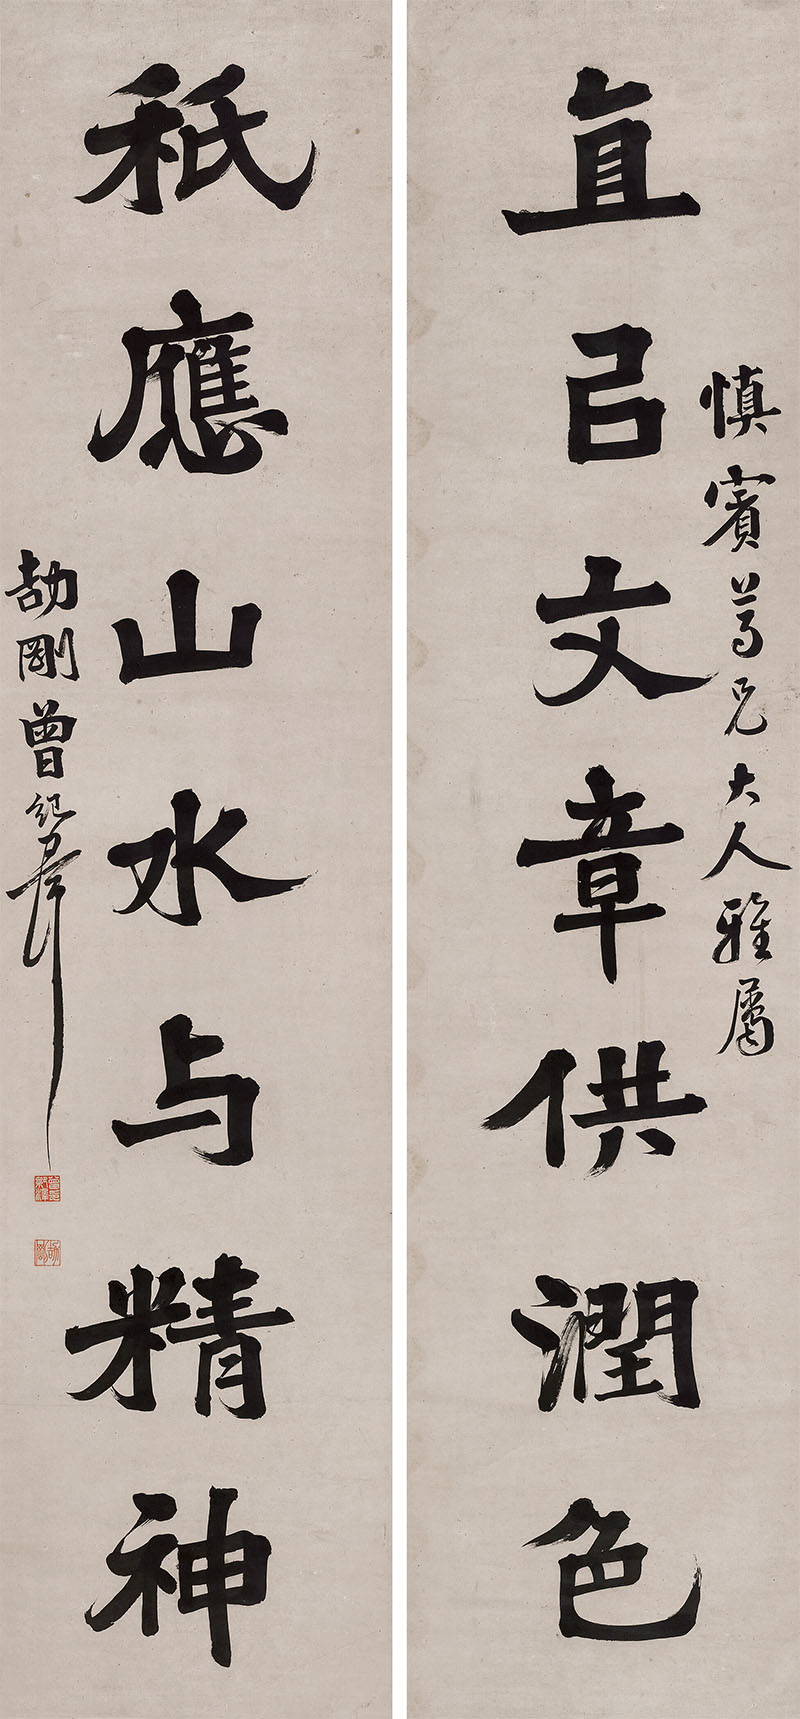 慎賓尊兄大人雅屬
直㠯文章供潤色
秖應山水与精神
劼剛曾紀澤
劼剛